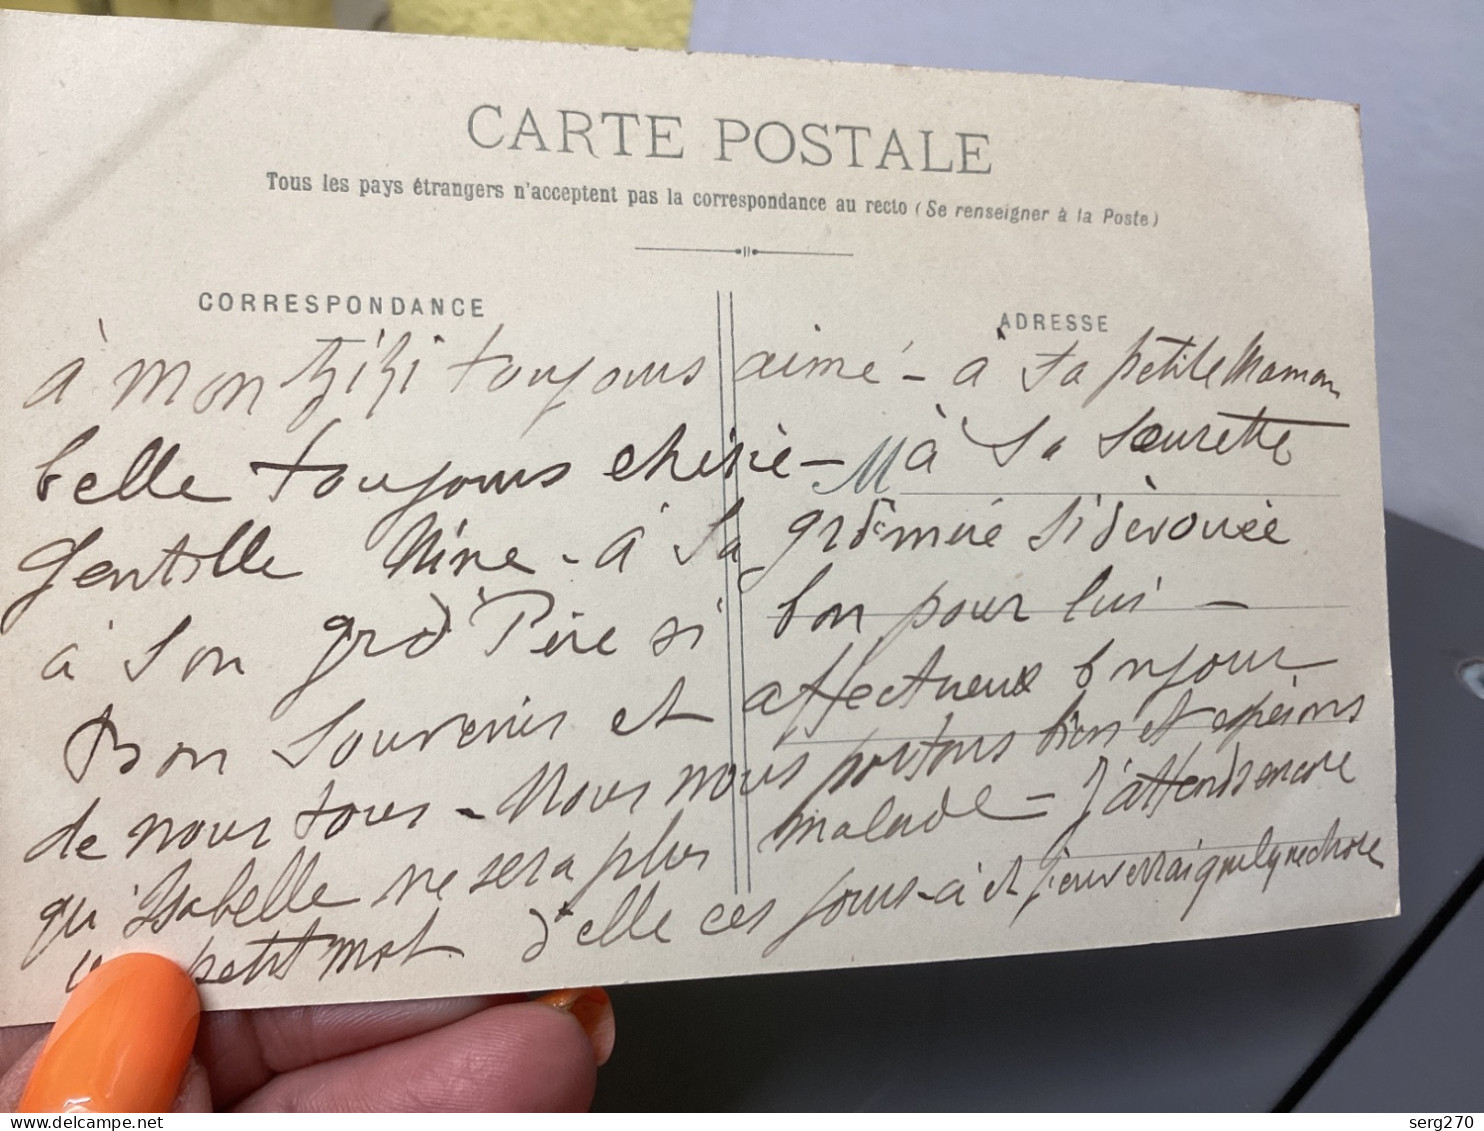 CARTE POSTALE
Tous les pays étrangers n'acceptent pas la correspondance au recto (Se renseigner à la Poste)
CORRESPONDANCE
ADRESSE
à mon Zizi toujours aimé - à sa petite Maman
belle toujours chérie - à sa sœurette
Gentille Nine - à sa grd mère si dévouée
à son grd Père si bon pour lui -
Bon souvenir et affectueux bonjour
de nous tous - Nous nous portons bien et espérons
qu'Isabelle ne sera plus malade - J'attends encore
un petit mot d'elle ces jours-ci et j'enverrai quelque chose
serg270